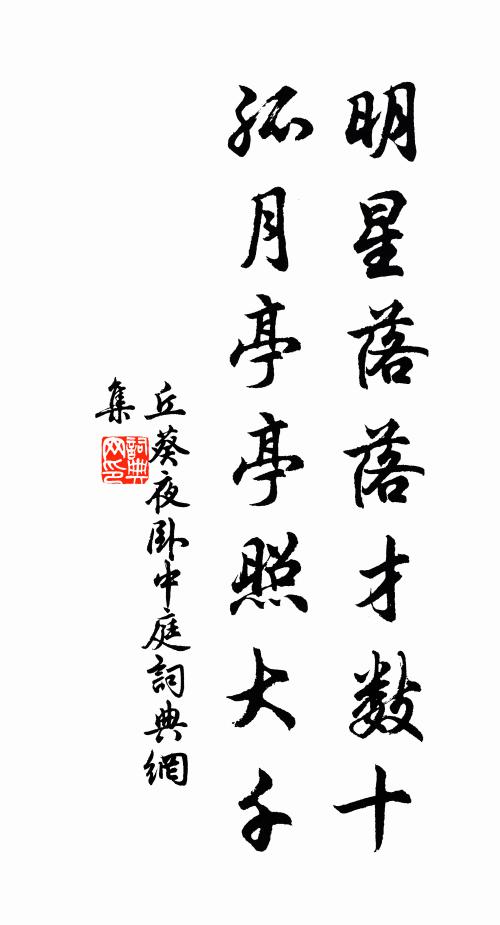 明星落落才数十
孤月亭亭照大千
丘葵夜卧中庭詞典網
集
詞典
网印